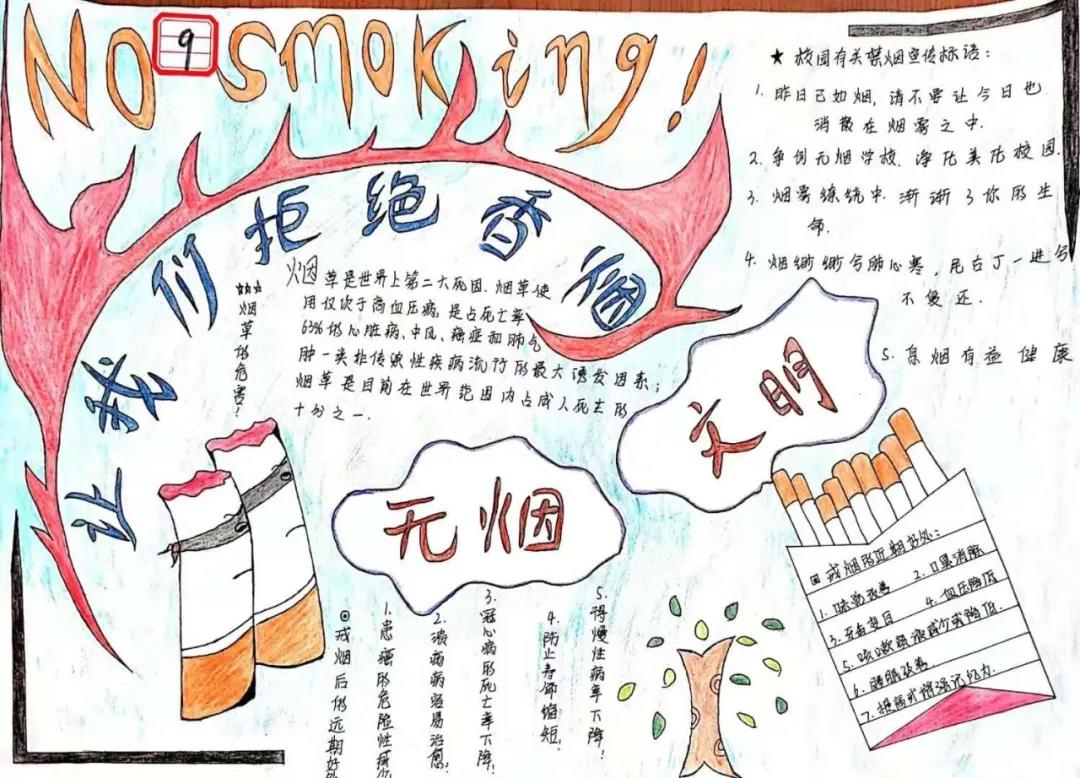 No smoking!
9
让我们拒绝香烟
★ 校园有关禁烟宣传标语:
1. 昨日已如烟,请不要让今日也
消散在烟雾之中.
2. 争创无烟学校,净化美化校园.
3. 烟雾缭绕中.渐渐了你的生
命.
4. 烟缈缈兮肺心寒,尼古丁一进兮
不复还.
5. 息烟有益健康
☆☆☆烟草的危害!
烟草是世界上第二大死因.烟草使
用仅次于高血压病,是占死亡率
63%的心脏病、中风、癌症和肺气
肿一类非传染性疾病流行的最大诱发因素;
烟草是目前在世界范围内占成人死亡的
十分之一.
文明
无烟
戒烟的近期好处:
1. 味觉改善
2. 口臭消除
3. 牙齿变白
4. 血压降低
5. 咳嗽
减少或降低.
6. 睡眠改善.
7. 提高或增强记忆力.
戒烟后的远期好
1. 患癌的危险性
2. 溃疡病容易治愈!
3. 冠心病的死亡率下降!
4. 防止寿命缩短!
5. 得慢性病率下降!